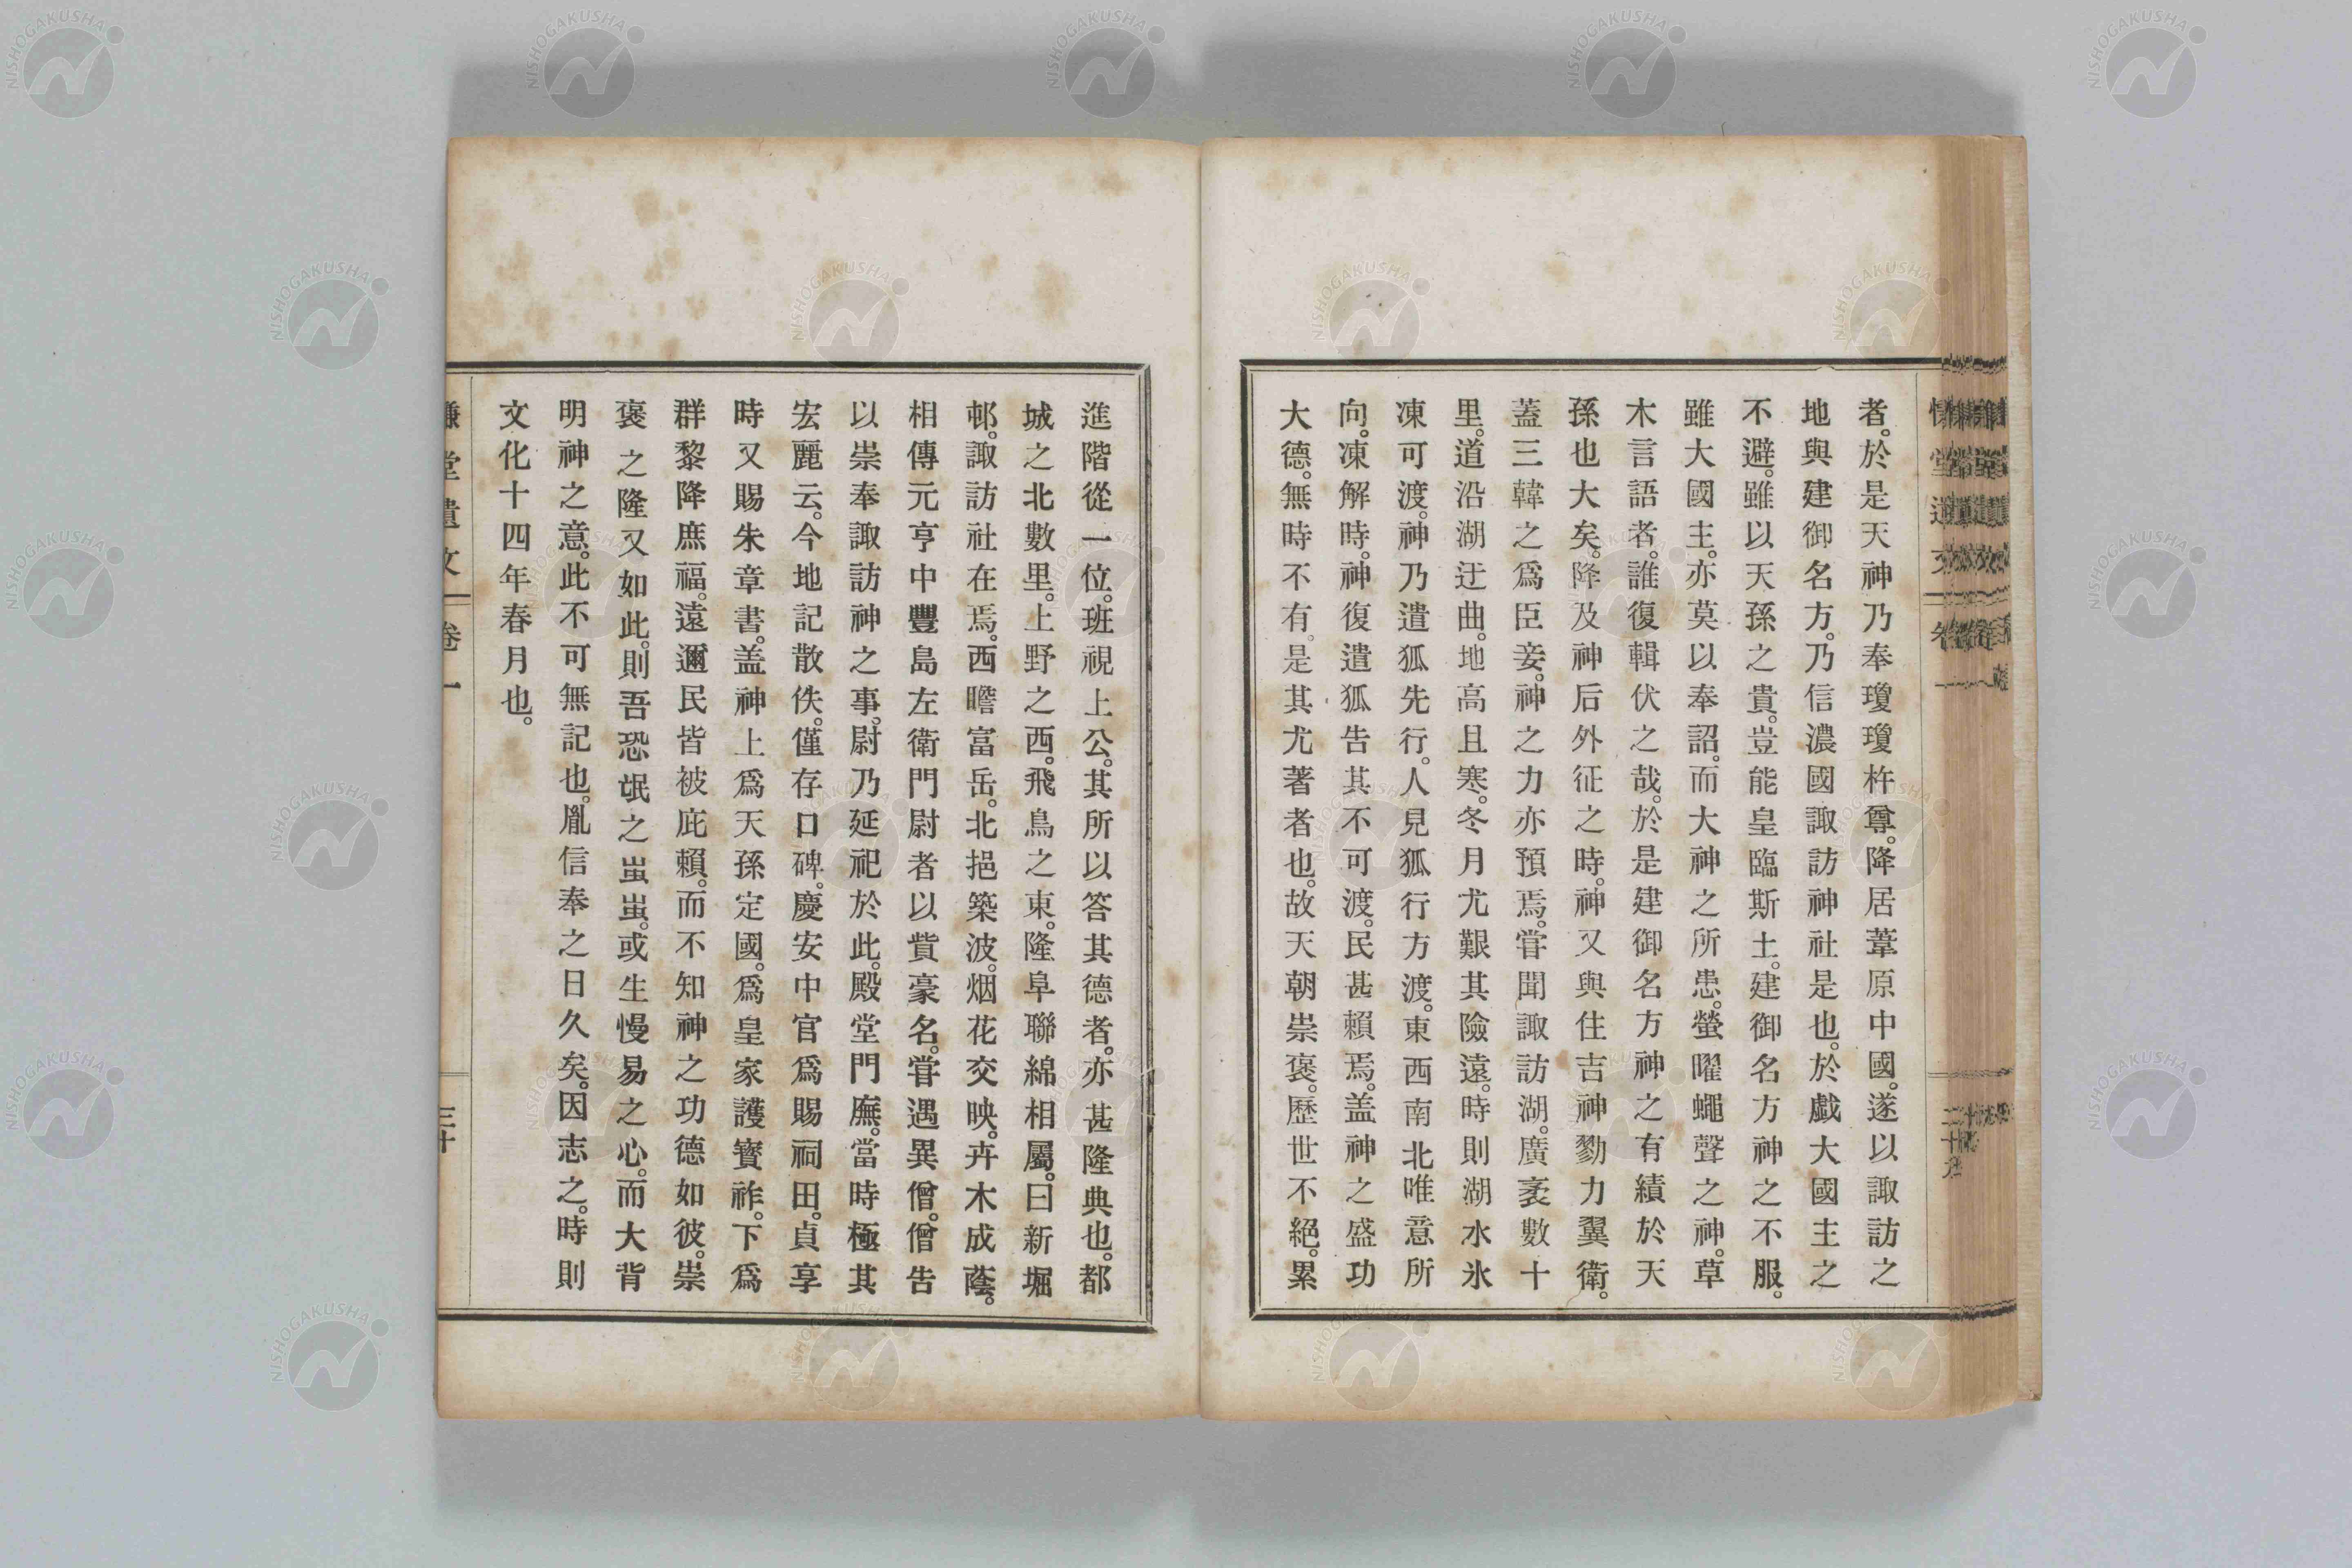 者。於是天神乃奉瓊瓊杵尊。降居葦原中國。遂以諏訪之
地與建御名方。乃信濃國諏訪神社是也。於戲大國主之
不避。雖以天孫之貴。豈能皇臨斯土。建御名方神之不服。
雖大國主。亦莫以奉詔。而大神之所患。螢曜蠅聲之神。草
木言語者。誰復輯伏之哉。於是建御名方神之有績於天
孫也大矣。降及神后外征之時。神又與住吉神勠力翼衛。
蓋三韓之爲臣妾。神之力亦預焉。甞聞諏訪湖。廣袤數十
里。道沿湖迂曲。地高且寒。冬月尤艱其險遠。時則湖水氷
凍可渡。神乃遣狐先行。人見狐行方渡。東西南北唯意所
向。凍解時。神復遣狐告其不可渡。民甚賴焉。盖神之盛功
大德。無時不有。是其尤著者也。故天朝崇褒。歷世不絕。累
進階從一位。班視上公。其所以答其德者。亦甚隆典也。都
城之北數里。上野之西。飛鳥之東。隆阜聯綿相屬。曰新堀
邨。諏訪社在焉。西瞻富岳。北挹築波。烟花交映。卉木成蔭。
相傳元亨中豐島左衛門尉者以貲豪名。甞遇異僧。僧告
以崇奉諏訪神之事。尉乃延祀於此。殿堂門廡。當時極其
宏麗云。今地記散佚。僅存口碑。慶安中官爲賜祠田。貞享
時又賜朱章書。盖神上爲天孫定國。爲皇家護寳祚。下爲
群黎降庶福。遠邇民皆被庇賴。而不知神之功德如彼。崇
褒之隆又如此。則吾恐氓之蚩蚩。或生慢易之心。而大背
明神之意。此不可無記也。胤信奉之日久矣。因志之。時則
文化十四年春月也。
堂遺文 卷一
三十